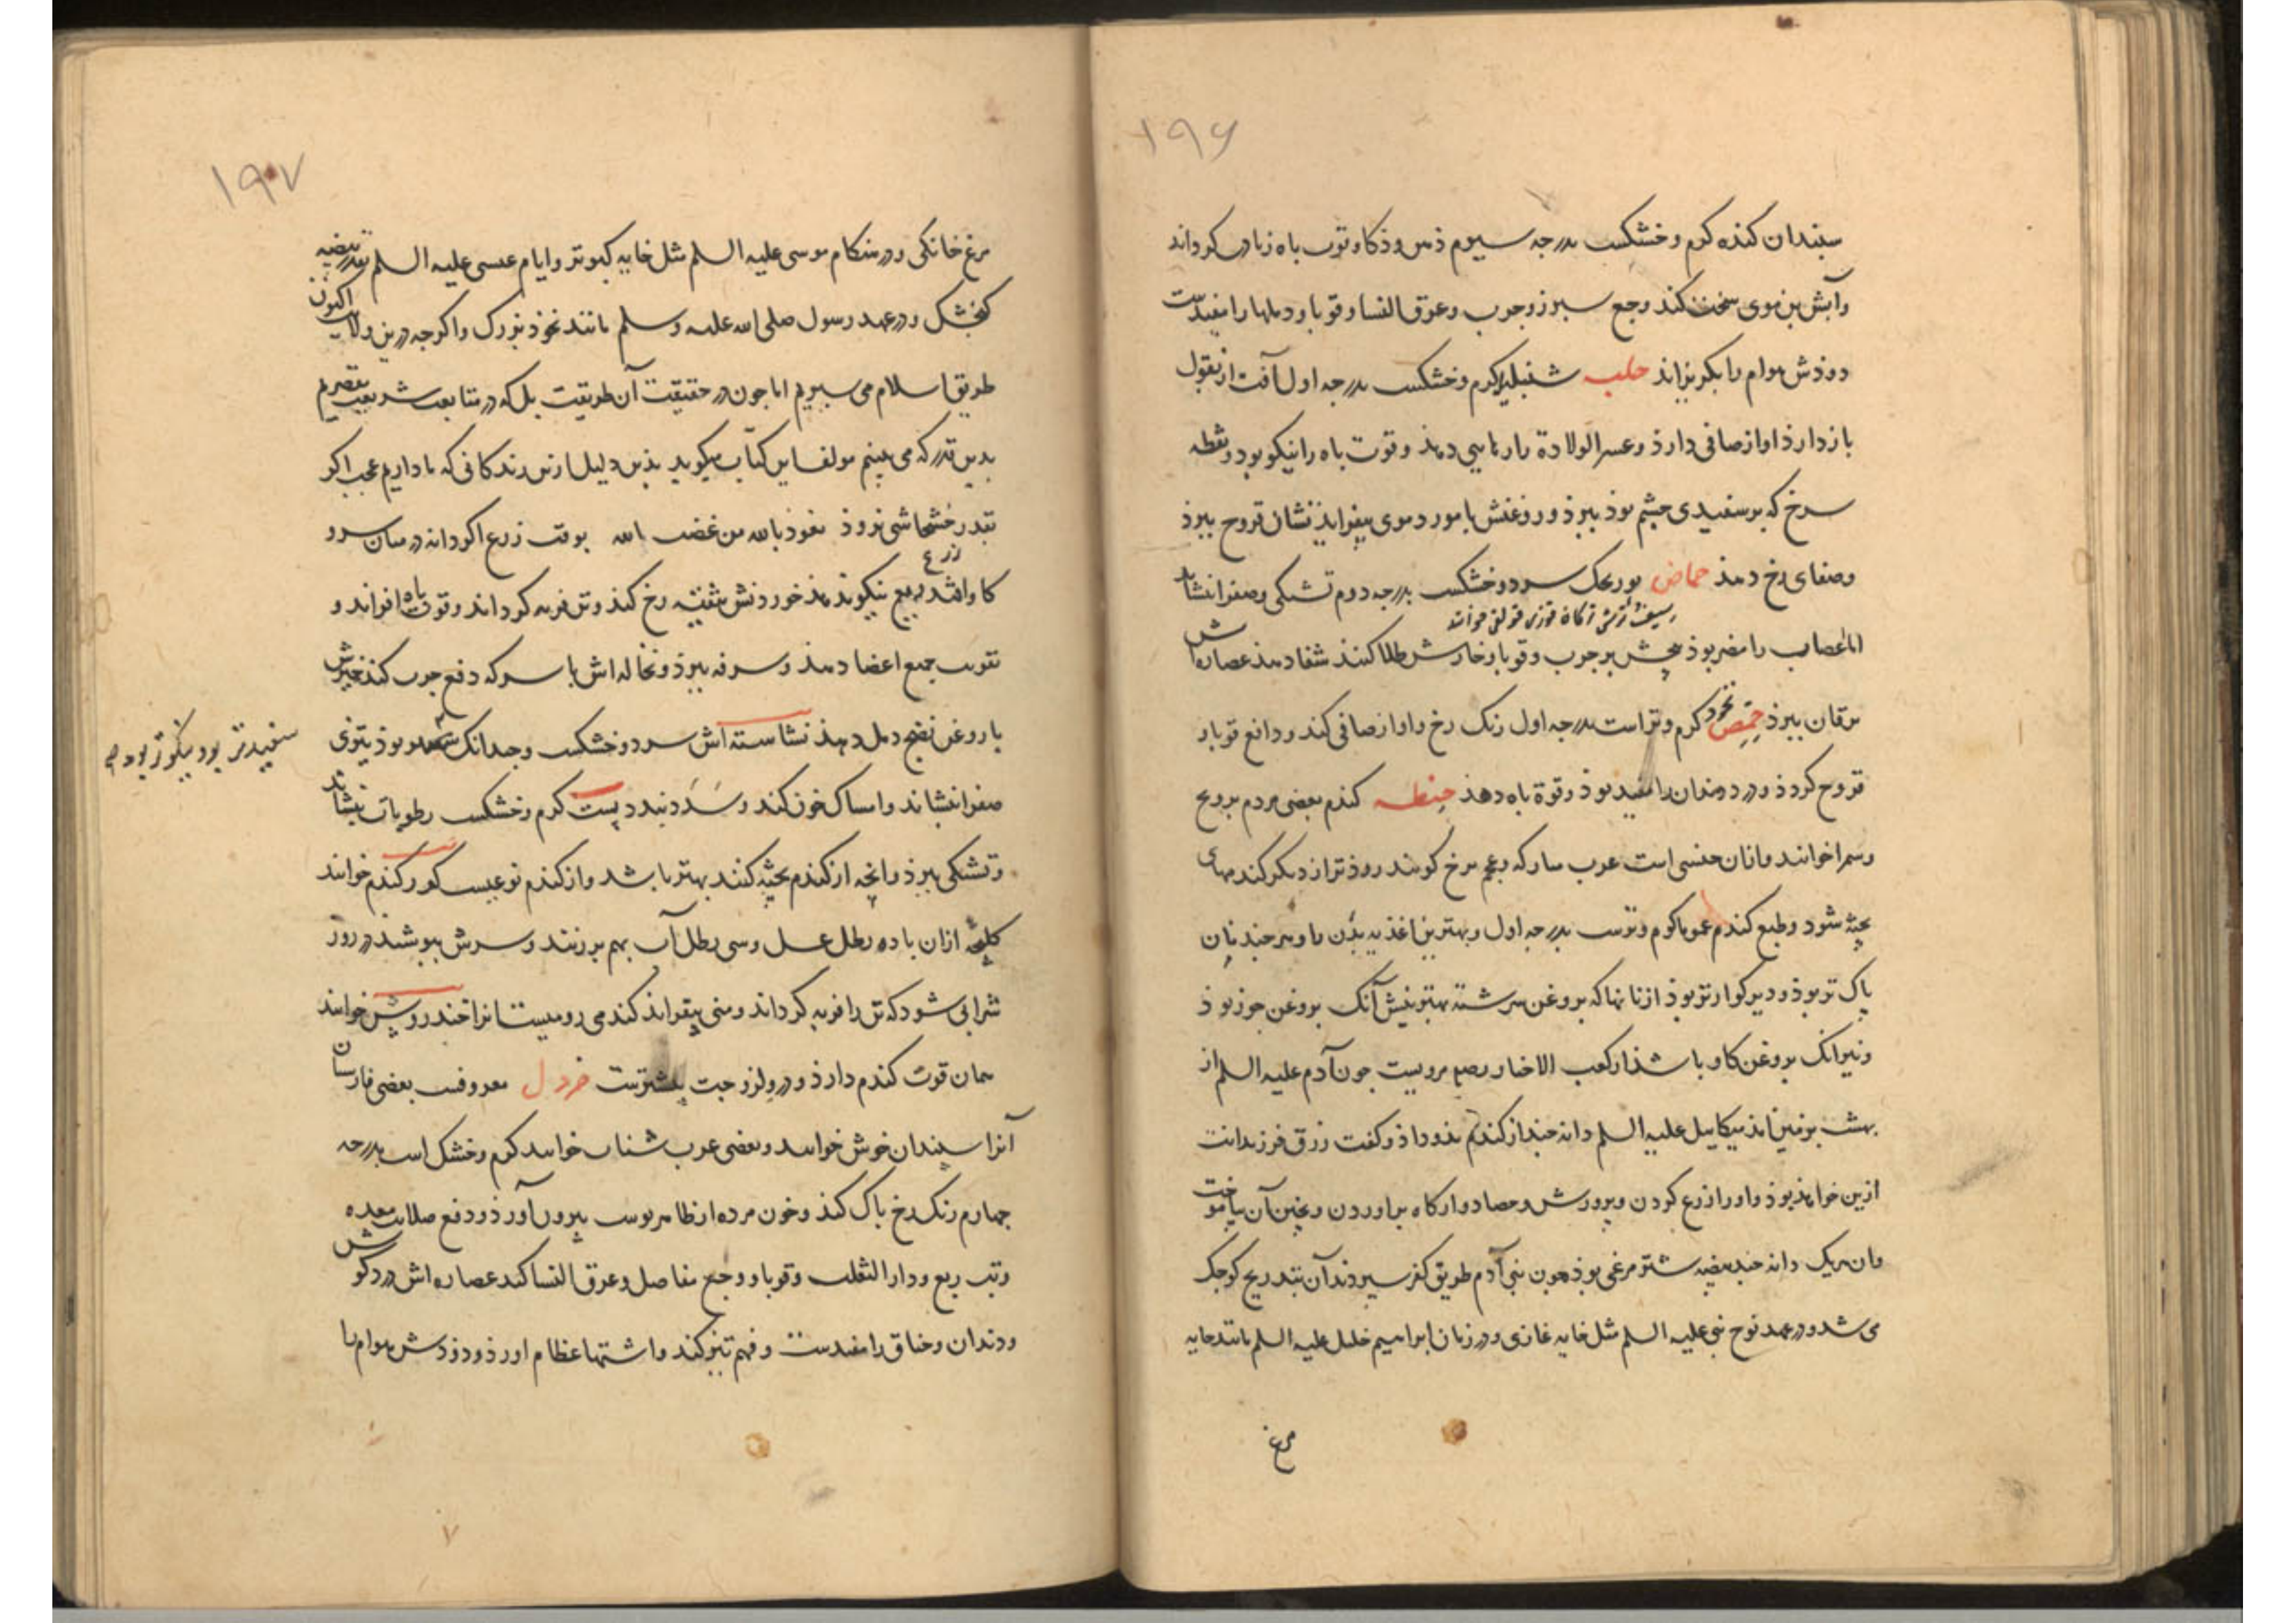 ۱۹۶
سپندان کنده کرم و خشکست بدرجه سیوم ذهن و ذکا و قوت باه زیادت کرداند
وآبش بن موی سخت کند وجع سبرز و جرب و عرق النسا و قوبا و دملها را مفیدست
دوذش هوام را بکریزاند حلبه شنبلیله کرم و خشکست بدرجه اول آفت از بقول
بازدارذ اواز صافی دارذ و عسر الولادة را رهایی دهذ و قوت باه را نیکو بود و نقطه
سرخ که بر سفیدی چشم بوذ ببرذ و روغنش با مورد موی بیفزایذ نشان قروح ببرذ
وصفای رخ دهذ حماض سرد و خشکست بدرجه دوم تشنکی و صفرا نشاند
اما اعصاب را مضر بوذ بیخش بر جرب و قوبا و خارش طلا کنند شفا دهذ عصاره اش
یرقان ببرذ حمص نخود کرم و تر است بدرجه اول رنک رخ و اواز صافی کند و دافع قوبا و
قروح کردذ و درد دندان را مفید بوذ و قوة باه دهذ حنطه کندم بعضی مردم بر و بح
وسمرا خوانند و انان جنسی است عرب مبارکه و عجم برخ کویند زوذتر از دیکر کندمهای
پخته شود و طبع کندم عموما کرم و ترست بدرجه اول و بهترین اغذیه بدن را و هر چند نان
پاک تر بوذ و دیرکوارتر بوذ از نانها که بروغن سرشته بهترینش آنک بروغن جوز بوذ
ونیز آنک بروغن کاو باشذ از کعب الاخبار رضه مرویست جون آدم علیه السلم از
بهشت بزمین آمذ میکاییل علیه السلم دانه جند از کندم بذو داذ و کفت رزق فرزندانت
ازین خواهذ بوذ و او را زرع کردن و پرورش و حصاد و از کاه براوردن و پختن آن بیاموخت
وان هریک دانه جند بیضه شترمرغی بوذ جون بنی آدم طریق کفر سپردند آن بتدریج کوجک
می شد و در عهد نوح نبی علیه السلم مثل خایه غازی و در زمان ابراهیم خلیل علیه السلم مانند خایه
مرغ
۱۹۷
مرغ خانکی و در هنکام موسی علیه السلم مثل خایه کبوتر و ایام عیسی علیه السلم بقدر بیضه
کنجشک و در عهد رسول صلی الله علیه و سلم مانند نخوذ بزرک و اکرجه درین ولا اکنون
طریق اسلام می سپریم اما جون در حقیقت آن طریقت بل که در متابعت شریعت مقصریم
بدین قدر که می بینیم مولف این کتاب میکوید بذین دلیل ازین زندکانی که ما داریم عجب اکر
بقدر خشخاشی نروذ نعوذ بالله من غضب الله بوقت زرع اکر دانه در میان سرو
کاو افتد ریع زرع نیکو ندهذ خوردنش رخ کند و تن فربه کرداند و قوت باه افزاند و
تقویت جمیع اعضا دهذ و سرفه ببرذ و نخاله اش با سرکه دفع جرب کند خمیرش
با روغن نضج دمل دهذ نشاسته اش سرد و خشکست و جندانک بوذ بقوی
سفیدتر بود نیکوتر بود
صفرا نشاند و امساک خون کند و سدد بندد پست کرم و خشکست رطوبات نشاند
و تشنکی ببرذ و انچه از کندم پخته کنند بهتر باشد و از کندم نوعیست کور کندم خوانند
کلیجه ازان با ده رطل عسل و سی رطل آب بهم برزنند و سرش بپوشند در روز
شرابی شود که تن را فربه کرداند و منی بیفزاند کندمی رومیست انرا خندروش خوانند
همان قوت کندم دارذ و درو لزوجت بیشترست خردل معروفست بعضی فارسیان
آنرا سپندان خوش خوانند و بعضی عرب خوانند کرم و خشک است بدرجه
جهارم رنک رخ پاک کند و خون مرده از ظاهر پوست بیرون آورذ و دفع صلابت معده
و تب ربع و دار الثعلب و قوبا و وجع مفاصل و عرق النسا کند عصاره اش درد کوش
و دندان و خناق را مفیدست و فهم تیز کند و اشتها عظام اورذ و دوذش هوام را